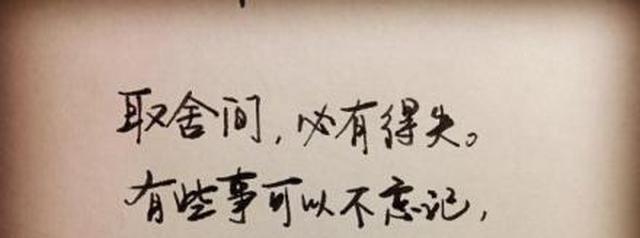 取舍间,必有得失。
有些事可以不忘记,